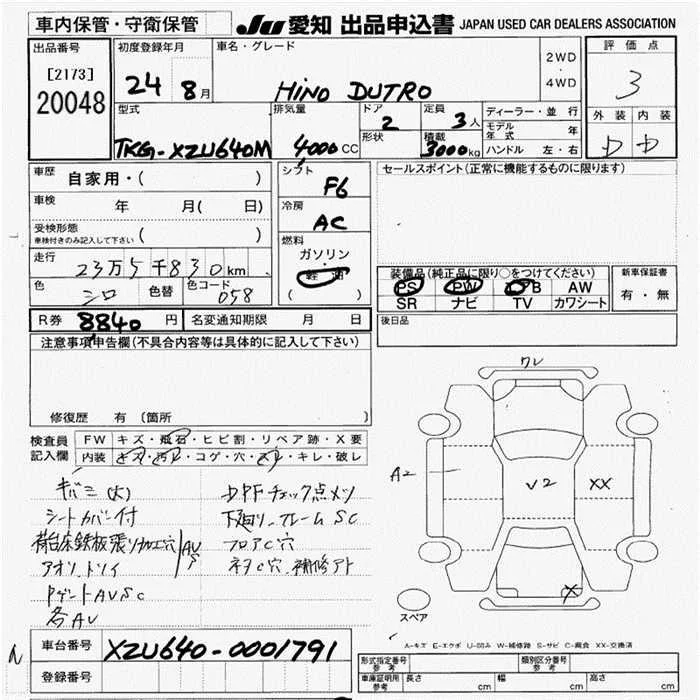 車内保管・守衛保管
JU 愛知 出品申込書 JAPAN USED CAR DEALERS ASSOCIATION
出品番号
[2173]
20048
初度登録年月
24 8月
車名・グレード
HINO DUTRO
2WD
4WD
評価点
3
外装 内装
型式
TKG-XZU640M
排気量
4000CC
ドア
2
形状
定員
3人
積載
3000kg
ディーラー・並行
モデル年式 年
ハンドル 左・右
車歴 自家用・( )
車検 年 月( 日)
受検形態
車検付きのみ記入して下さい ( )
走行 23万5千830km
色 シロ 色替 色コード 058
シフト
F6
冷房
AC
燃料
ガソリン
・
軽油
( )
セールスポイント(正常に機能するものに限ります)
装備品(純正品に限り○をつけてください)
PS PW AB AW
SR ナビ TV カワシート
新車保証書
有・無
R券 8840円 名変通知期限 月 日
後日品
注意事項申告欄(不具合内容等は具体的に記入して下さい)
修復歴 有 (箇所 )
検査員記入欄
FW キズ・飛石・ヒビ割・リペア跡・X要
内装 キズ・汚れ・コゲ・穴・スレ・キレ・破レ
キバミ(大)
シートカバー付
荷台床鉄板張リ加工穴
アオリ、トリイ
AUS
各AU
DPFチェック点メツ
下廻リ、フレームSC
フロアC穴
ネタC穴、補修アト
ワレ
A2
V2
XX
X
スペア
A-キズ E-エクボ U-凹み W-補修跡 S-サビ C-腐食 XX-交換済
車台番号 XZU640-0001791
登録番号
形式指定番号 参考
類別区分番号 参考
車庫証明用 参考 長さ cm 幅 cm 高さ cm